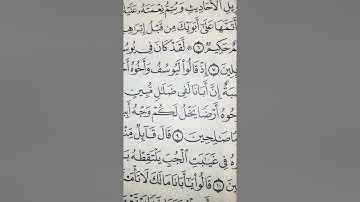 يلِ ٱلْأَحَادِيثِ وَيُتِمُّ نِعْمَتَهُۥ عَلَيْ
أَتَمَّهَا عَلَىٰٓ أَبَوَيْكَ مِن قَبْلُ إِبْرَٰهِ
حَكِيمٌ ٦ ۞ لَّقَدْ كَانَ فِي يُوسُ
لِينَ ٧ إِذْ قَالُوا۟ لَيُوسُفُ وَأَخُوهُ أَ
بَةٌ إِنَّ أَبَانَا لَفِي ضَلَٰلٍ مُّبِينٍ
حُوهُ أَرْضًا يَخْلُ لَكُمْ وَجْهُ أَبِي
مًا صَٰلِحِينَ ٩ قَالَ قَآئِلٌ مِّنْ
هُ فِي غَيَٰبَتِ ٱلْجُبِّ يَلْتَقِطْهُ بَ
ينَ ١٠ قَالُوا۟ يَٰٓأَبَانَا مَالَكَ لَا تَأْمَ۫نَّ